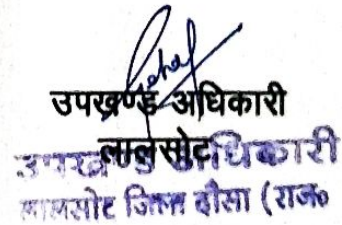 उपखण्ड अधिकारी
लालसोट
उपखण्ड अधिकारी
लालसोट जिला दौसा (राज०